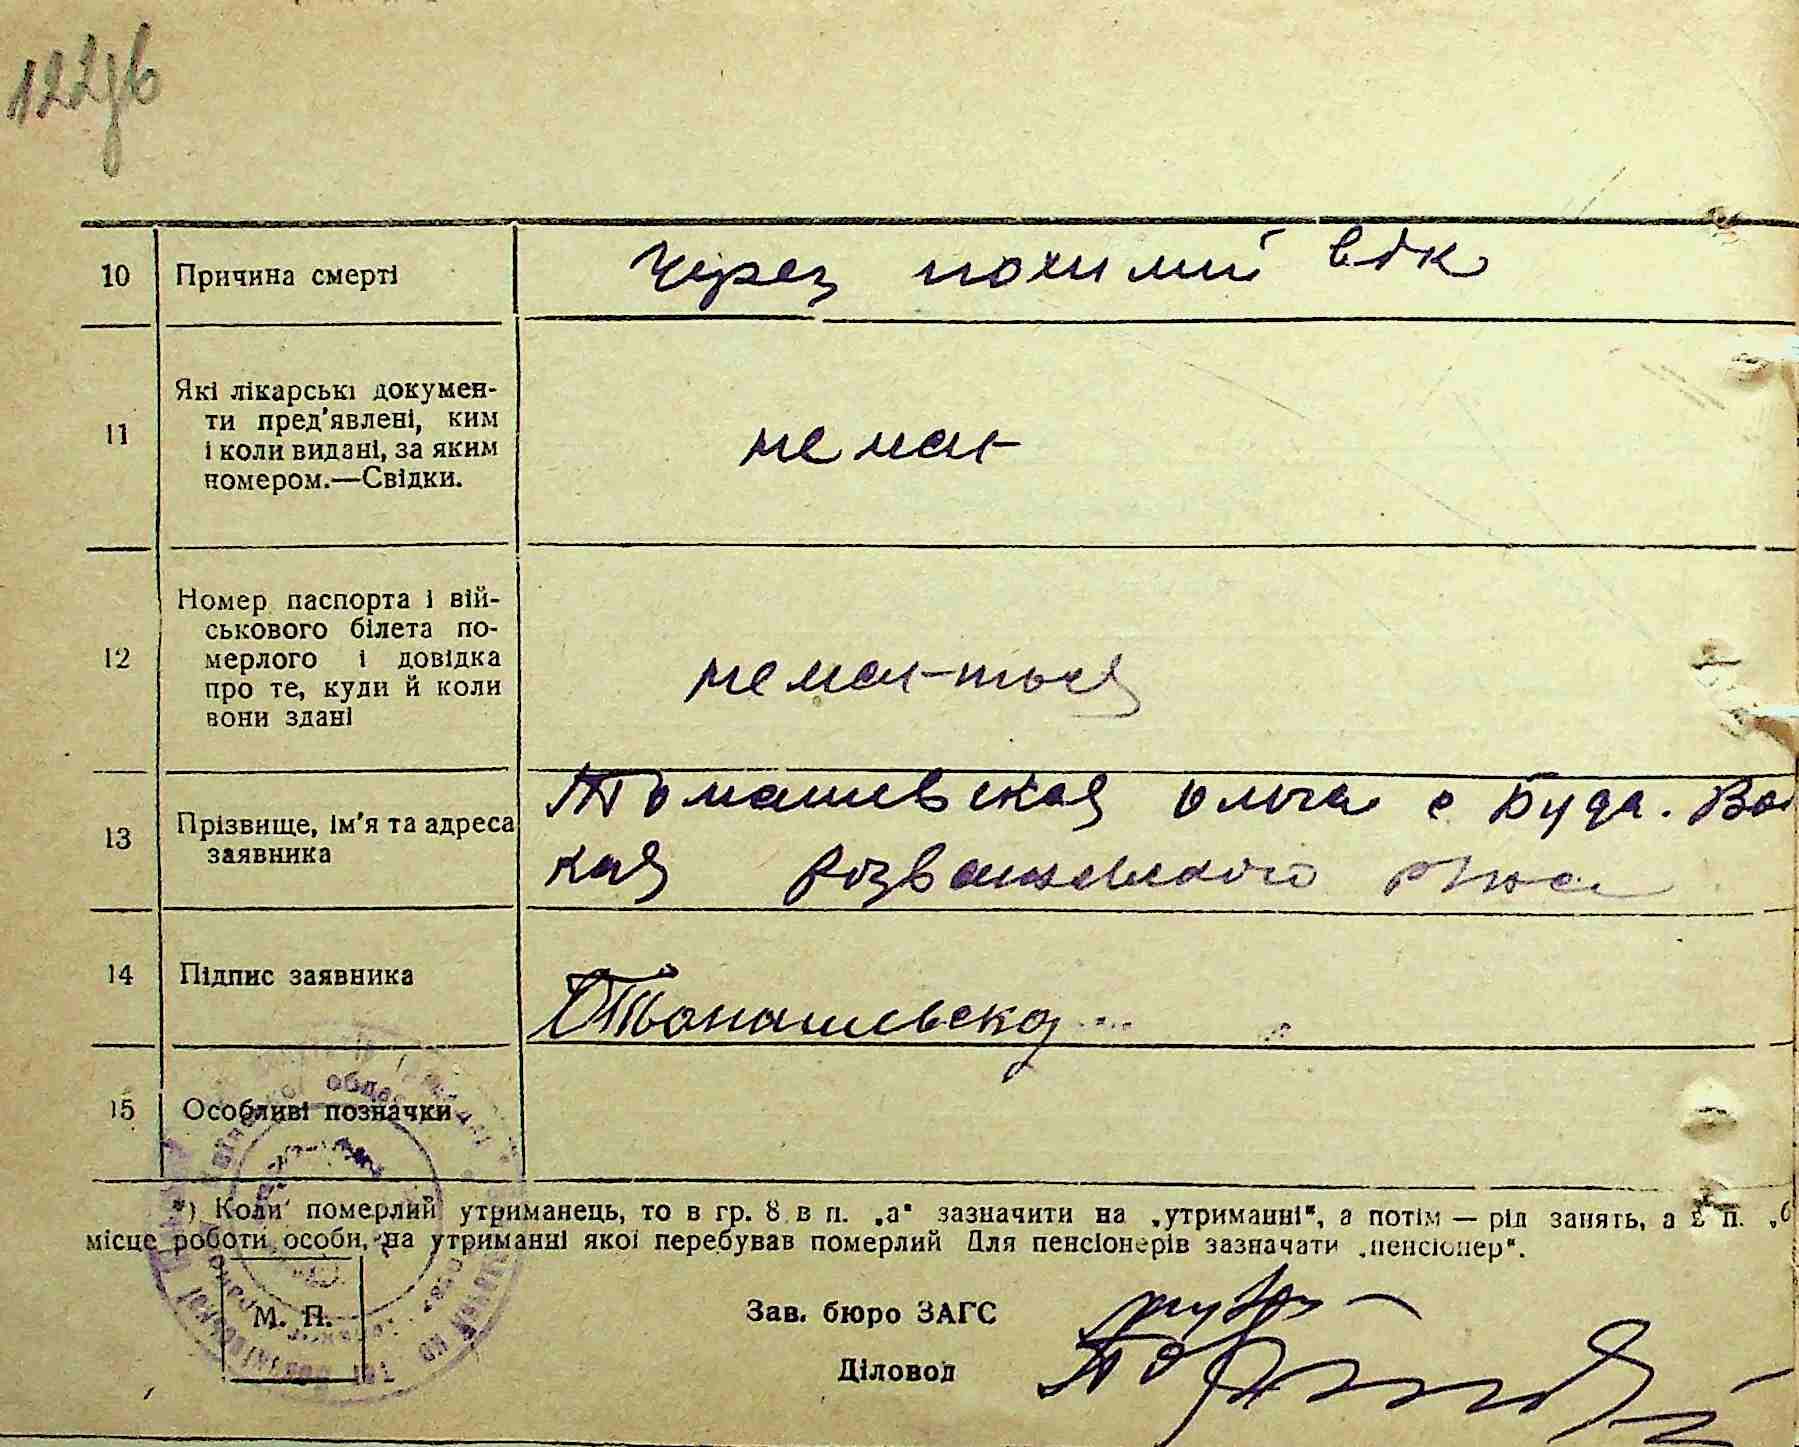 122зв
10 Причина смерті через похилий вік
11 Які лікарські докумен-
ти пред'явлені, ким
і коли видані, за яким
номером.—Свідки.
немає
12 Номер паспорта і вій-
ськового білета по-
мерлого і довідка
про те, куди й коли
вони здані
немає-ться
13 Прізвище, ім'я та адреса
заявника
Томашевская Ольга с Буда. Вой
кая Розважевского р-на
14 Підпис заявника
Томашевска
15 Особливі позначки
*) Коли померлий утриманець, то в гр. 8 в п. „а" зазначити на „утриманні", а потім — рід занять, а в п. „б
місце роботи особи, на утриманні якої перебував померлий Для пенсіонерів зазначати „пенсіонер".
М. П.
Зав. бюро ЗАГС
Діловод